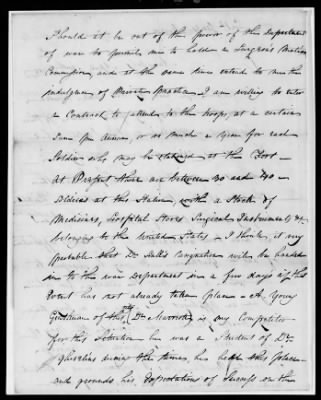 Should it be out of the power of the Department
of war to permit me to hold a Surgeon's Mates
Commission, and at the same time extend to me the
indulgence of Private practice, I am willing to enter
a Contract to attend to the troops, at a certain
Sum per Annum, or so much a Year for each
Soldier who may be stationed at the Post —
At Present there are between 30 and 40 —
Soldiers at this Station, with a Stock of
Medicines, Hospital Stores Surgical Instruments &c
belonging to the United States — I think it very
probable that Dr. resignation will be handed
in to the war Department in a few days if the
Event has not already taken place — A Young
Gentleman of this Dr. is my Competitor
for this Situation he was a Student of Dr.
during the times he held this place
and grounds his expectation of Success on the